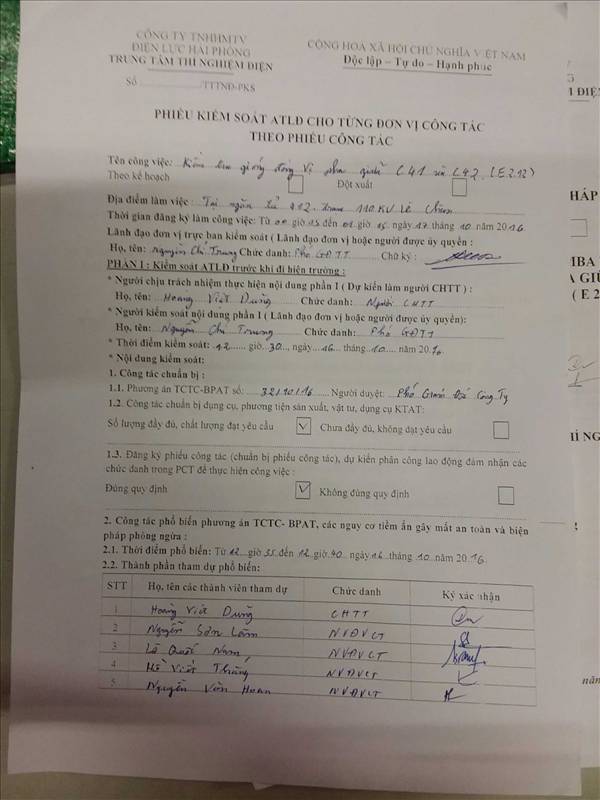 CÔNG TY TNHHMTV
ĐIỆN LỰC HẢI PHÒNG
TRUNG TÂM THÍ NGHIỆM ĐIỆN
Số ....................../TTTNĐ-PKS
CỘNG HOA XÃ HỘI CHỦ NGHĨA VIỆT NAM
Độc lập – Tự do – Hạnh phúc
PHIẾU KIỂM SOÁT ATLĐ CHO TỪNG ĐƠN VỊ CÔNG TÁC
THEO PHIẾU CÔNG TÁC
Tên công việc: Kiểm tra C41 C42 (E2.12)
Theo kế hoạch Đột xuất
Địa điểm làm việc : Tại ngăn 110KV Lê Chân
Thời gian đăng ký làm việc: Từ giờ đến giờ ngày 17 tháng 10 năm 2016
Lãnh đạo đơn vị trực ban kiểm soát ( Lãnh đạo đơn vị hoặc người được ủy quyền :
Họ, tên: Nguyễn Chí Trung Chức danh: Phó GĐTT Chữ ký :
PHẦN I : Kiểm soát ATLĐ trước khi đi hiện trường :
* Người chịu trách nhiệm thực hiện nội dung phần I ( Dự kiến làm người CHTT ) :
Họ, tên: Hoàng Việt Dũng Chức danh: Người CHTT
* Người kiểm soát nội dung phần I ( Lãnh đạo đơn vị hoặc người được ủy quyền):
Họ, tên: Nguyễn Chí Trung Chức danh: Phó GĐTT
* Thời điểm kiểm soát: 12 giờ 30, ngày 16 tháng 10 năm 2016
* Nội dung kiểm soát:
1. Công tác chuẩn bị :
1.1. Phương án TCTC-BPAT số: Người duyệt: Phó Giám Đốc Công Ty
1.2. Công tác chuẩn bị dụng cụ, phương tiện sản xuất, vật tư, dụng cụ KTAT:
Số lượng đầy đủ, chất lượng đạt yêu cầu V Chưa đầy đủ, không đạt yêu cầu
1.3. Đăng ký phiếu công tác (chuẩn bị phiếu công tác), dự kiến phân công lao động đảm nhận các
chức danh trong PCT để thực hiện công việc :
Đúng quy định V Không đúng quy định
2. Công tác phổ biến phương án TCTC- BPAT, các nguy cơ tiềm ẩn gây mất an toàn và biện
pháp phòng ngừa :
2.1. Thời điểm phổ biến: Từ 12 giờ 35 đến 12 giờ 40 ngày 16 tháng 10 năm 2016
2.2. Thành phần tham dự phổ biến:
STT Họ, tên các thành viên tham dự Chức danh Ký xác nhận
1 Hoàng Việt Dũng CHTT
2 Nguyễn Sơn Lâm NVĐVCT
3 Lê Quốc Nam NVĐVCT
4 Hồ Viết Thắng NVĐVCT
5 Nguyễn Văn Hoan NVĐVCT